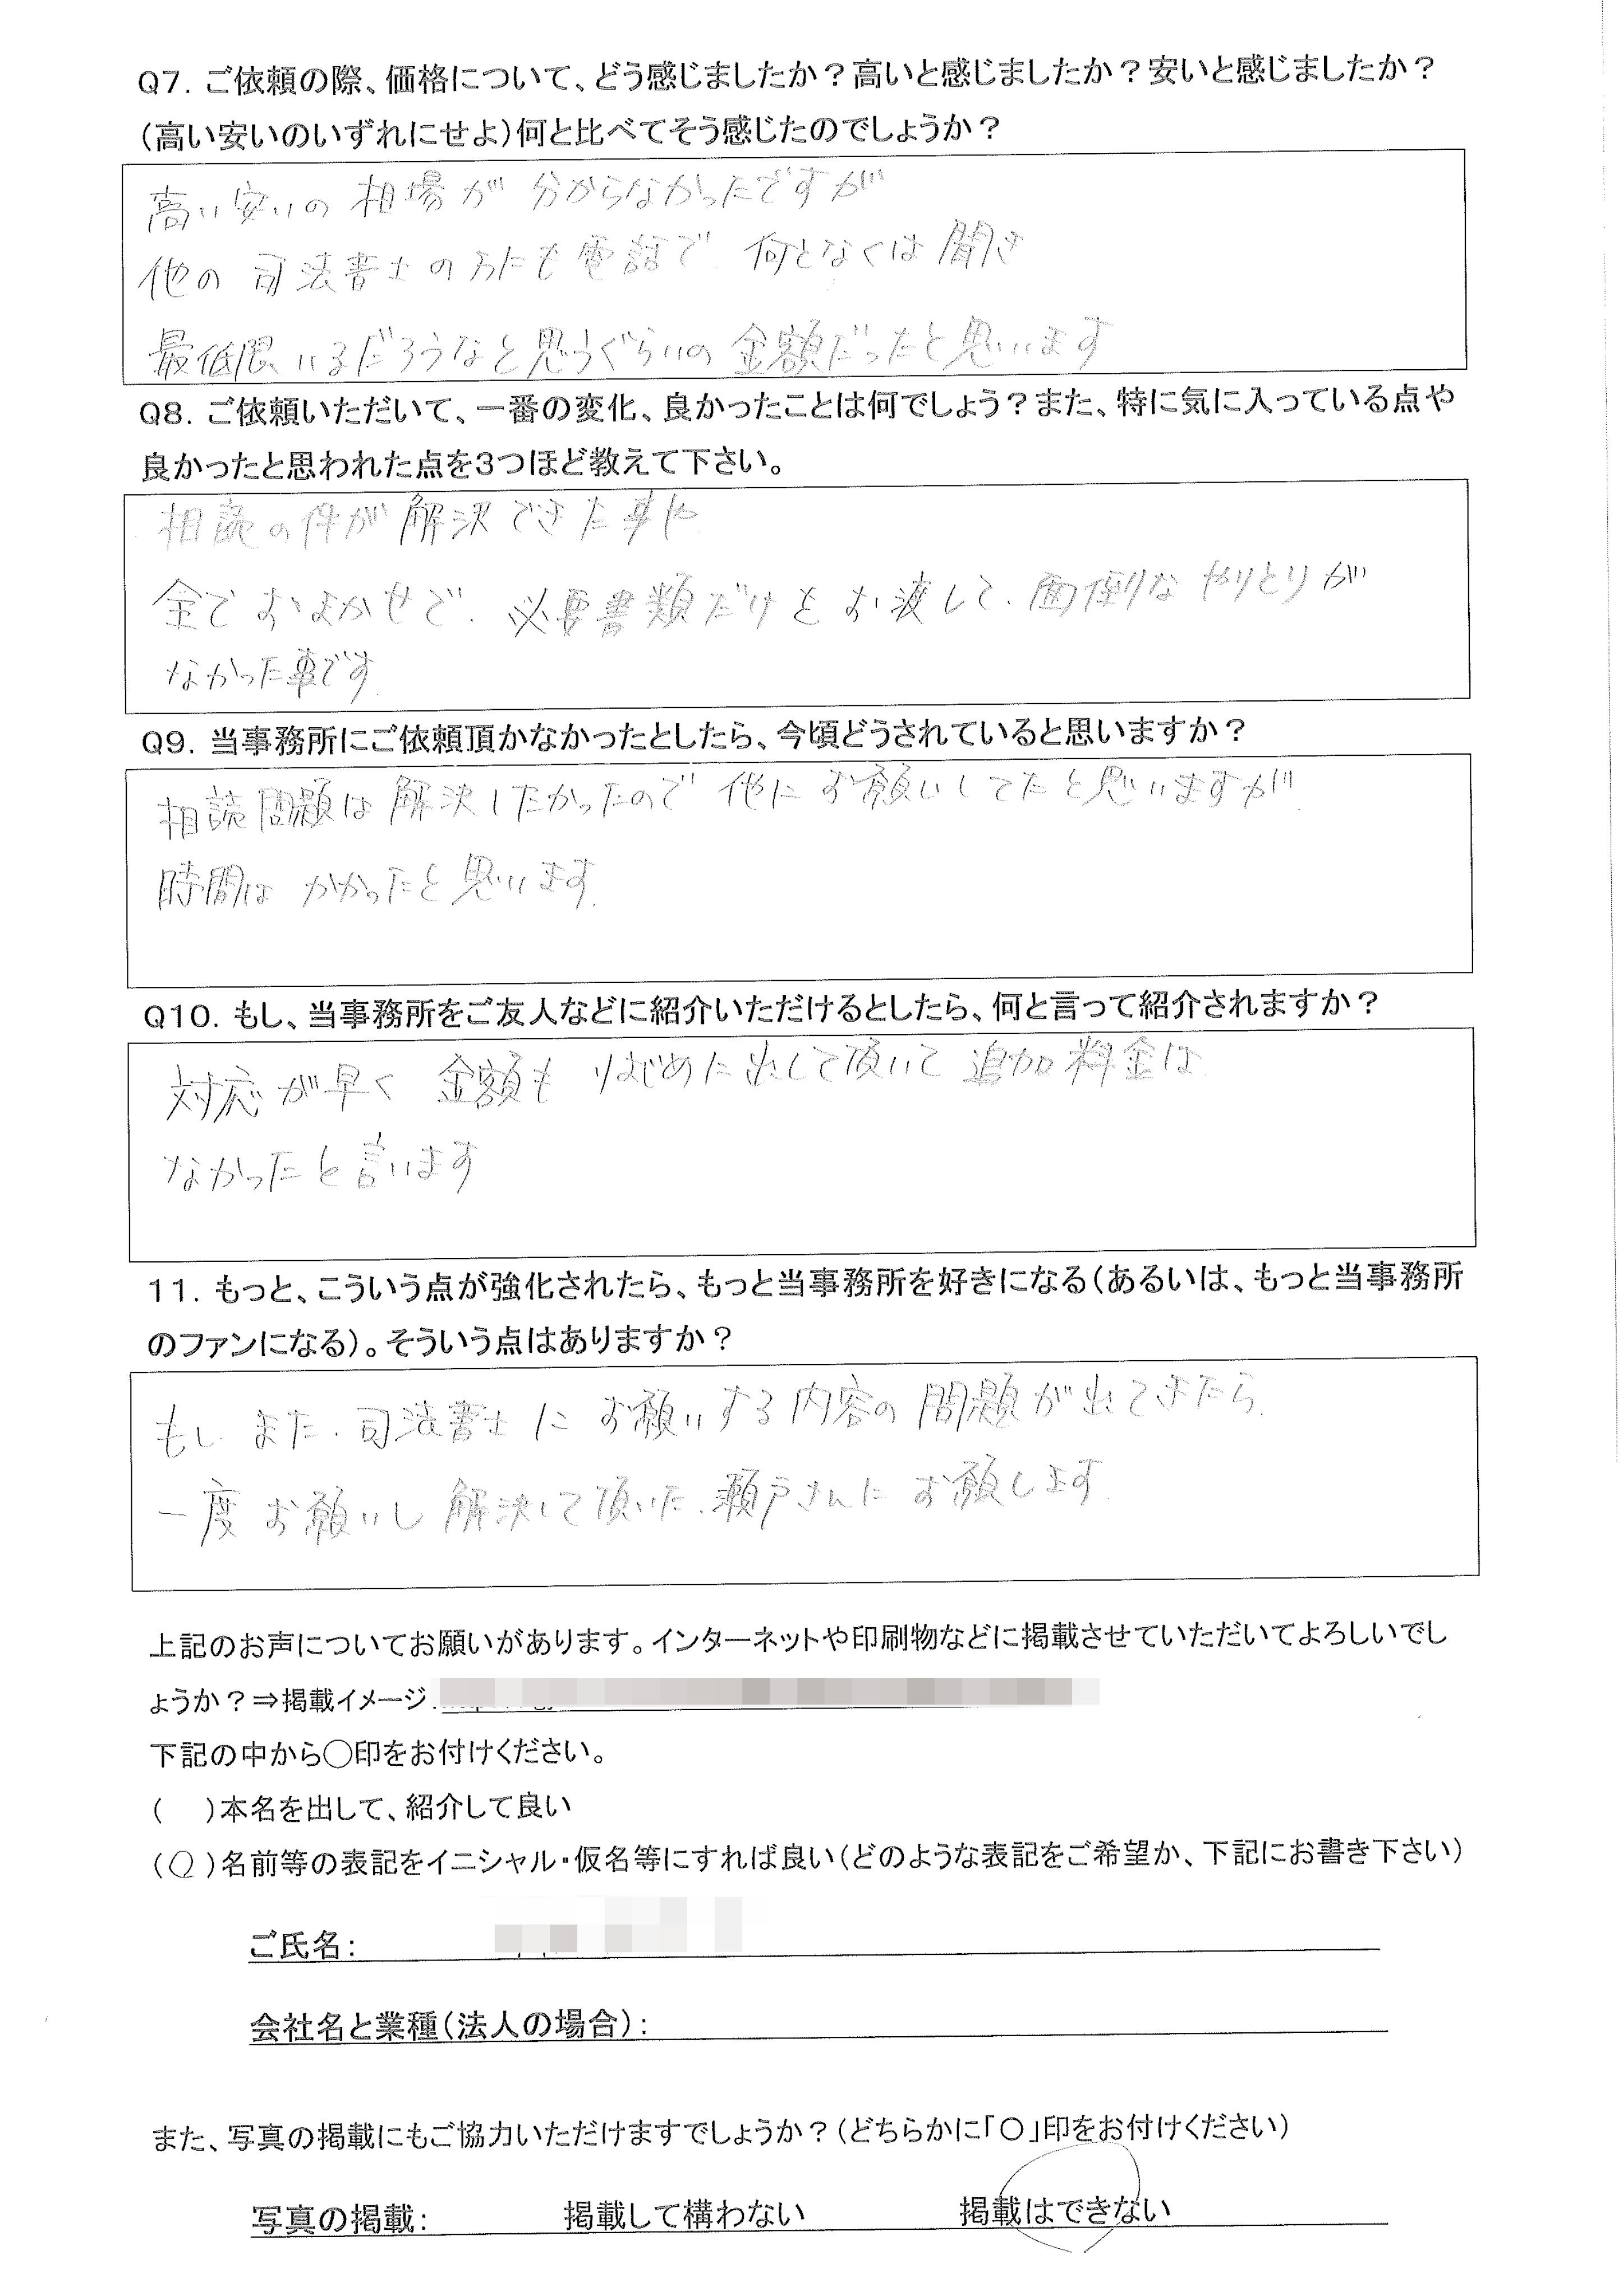 Q7. ご依頼の際、価格について、どう感じましたか？高いと感じましたか？安いと感じましたか？
（高い安いのいずれにせよ）何と比べてそう感じたのでしょうか？
高い安いの 相場が 分からなかったですが
他の 司法書士の方にも電話で 何となくは聞き
最低限いるだろうなと思うぐらいの 金額だったと思います
Q8. ご依頼いただいて、一番の変化、良かったことは何でしょう？また、特に気に入っている点や
良かったと思われた点を3つほど教えて下さい。
相談の件が 解決できた事や
全ておまかせで、必要書類だけをお渡しして、面倒な やりとりが
なかった事です
Q9. 当事務所にご依頼頂かなかったとしたら、今頃どうされていると思いますか？
相談問題は 解決したかったので 他に お願いしてたと思いますが
時間は かかったと思います。
Q10. もし、当事務所をご友人などに紹介いただけるとしたら、何と言って紹介されますか？
対応が早く 金額も はじめに出して頂いて 追加料金は
なかったと言います
11. もっと、こういう点が強化されたら、もっと当事務所を好きになる（あるいは、もっと当事務所
のファンになる）。そういう点はありますか？
もし また、司法書士に お願いする内容の 問題が出てきたら
一度 お願いし 解決して頂いた、瀬戸さんに お願します
上記のお声についてお願いがあります。インターネットや印刷物などに掲載させていただいてよろしいでし
ょうか？⇒掲載イメージ
下記の中から○印をお付けください。
（　）本名を出して、紹介して良い
（○）名前等の表記をイニシャル・仮名等にすれば良い（どのような表記をご希望か、下記にお書き下さい）
ご氏名：
会社名と業種（法人の場合）：
また、写真の掲載にもご協力いただけますでしょうか？（どちらかに「○」印をお付けください）
写真の掲載： 掲載して構わない 掲載はできない